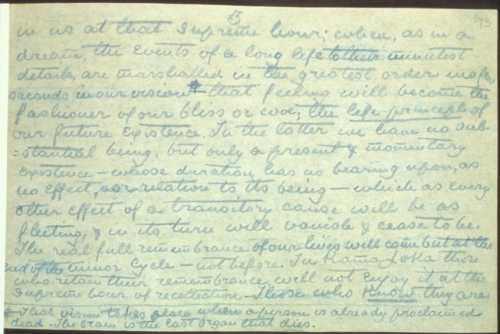 5
93
in us at that supreme hour; when, as in a
dream, the events of a long life to their minutest
details, are marshalled in the greatest order in a few
seconds in our vision * that feeling will become the
fashioner of our bliss or woe, the life principle of
our future existence. In the latter we have no sub-
=stantial being, but only a present & momentary
existence — whose duration has no bearing upon, as
no effect, or relation to its being — which as every
other effect of a transitory cause will be as
fleeting, & in its turn will vanish & cease to be.
The real full remembrance of our lives will come but at the
end of the minor cycle — not before. In Kama Loka those
who retain their remembrance, will not enjoy it at the
supreme hour of recollection — Those who know they are
* That vision takes place when a person is already proclaimed
dead. The brain is the last organ that dies.